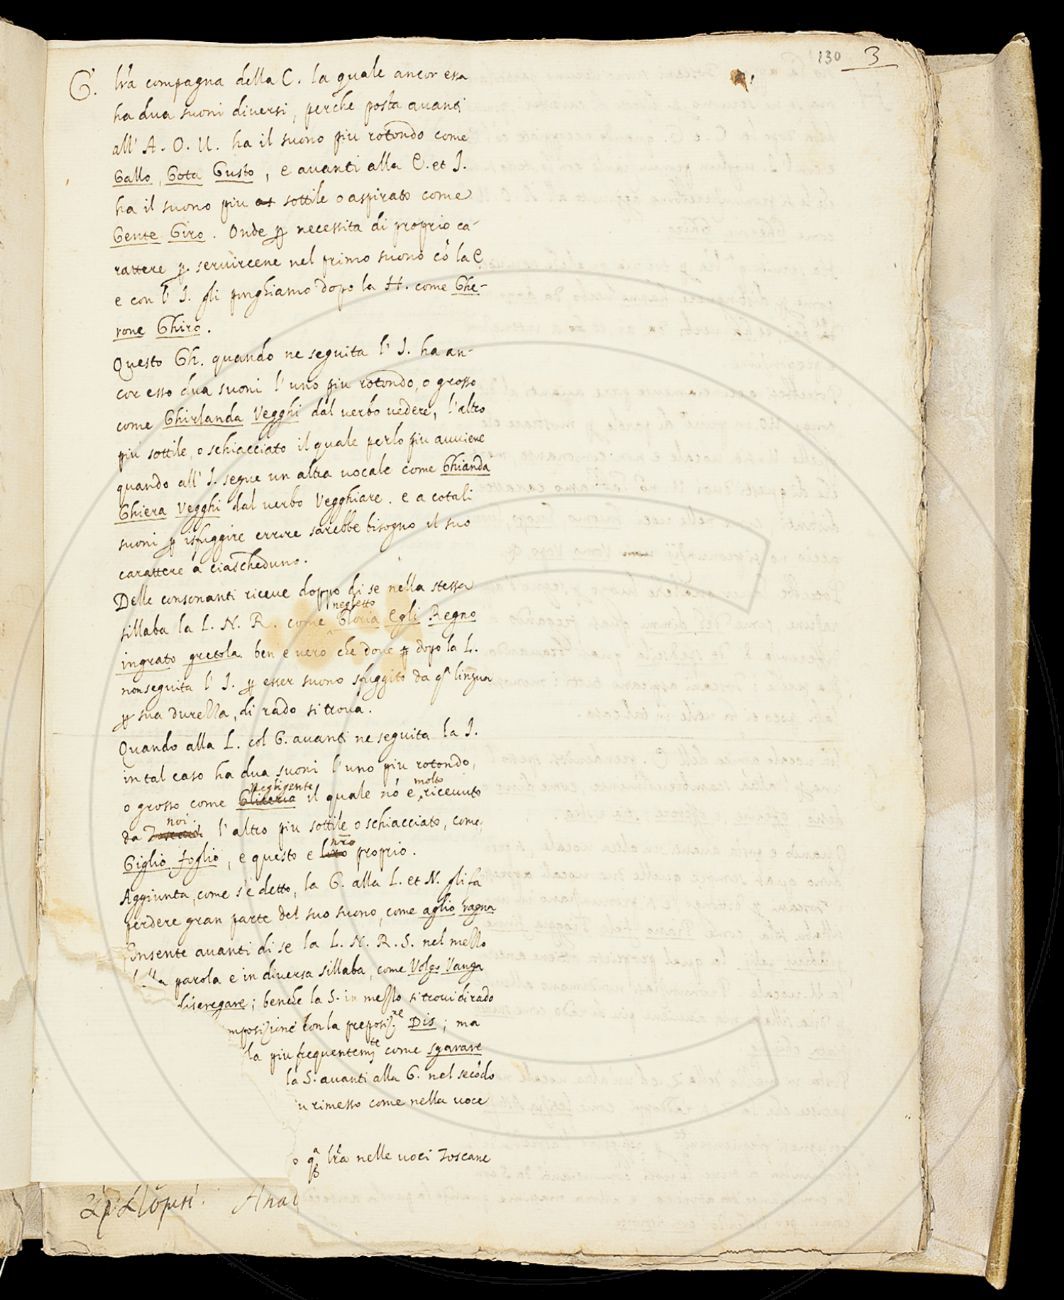 130 3
G. lr̃a compagna della C. la quale ancor essa
ha dua suoni diversi, perche posta avanti
all' A. O. U. ha il suono piu rotondo come
Gallo, Gota Gusto, e avanti alla E. et I.
ha il suono piu sottile o aspirato come
Gente Giro. Onde ꝑ necessita di proprio ca-
rattere ꝑ servircene nel primo suono cõ la E
e con l' I. gli ponghiamo dopo la H. come Ghe-
rone Ghiro.
Questo Gh. quando ne seguita l' I. ha an-
cor esso dua suoni l'uno piu rotondo, o grosso
come Ghirlanda Vegghi dal verbo vedere, l'altro
piu sottile, o schiacciato il quale perlo piu avviene
quando all' I. segue un altra vocale come Ghianda
Ghiera Vegghi dal verbo Vegghiare. e a cotali
suoni ꝑ isfuggire errore sarebbe bisogno il suo
carattere a ciascheduno.
Delle consonanti riceve doppo di se nella stessa
negletto
sillaba la L. N. R. come Gloria Egli Regno
ingrato gretola ben e vero che dove dopo la L.
non seguita l' I. ꝑ esser suono sfuggito da q̃ª lingua
ꝑ sua durezza, di rado si trova.
Quando alla L. col G. avanti ne seguita la I.
in tal caso ha dua suoni l'uno piu rotondo,
negligente molto
o grosso come il quale nõ e ricevuto
noi
da l'altro piu sottile o schiacciato, come
nr̃o
Giglio foglio, e questo e proprio.
Aggiunta, come s'e detto, la G. alla L. et N. gli fa
perdere gran parte del suo suono, come aglio ragna.
Consente avanti di se la L. N. R. S. nel mezzo
della parola e in diversa sillaba, come Volgo Vanga
disgregare; benche la S. in mezzo si trovi di rado
mposizione con la preposizne Dis; ma
la piu frequentemte come sgarare
la S. avanti alla G. nel secõdo
u rimesso come nella voce
o qª lr̃a nelle voci Toscane